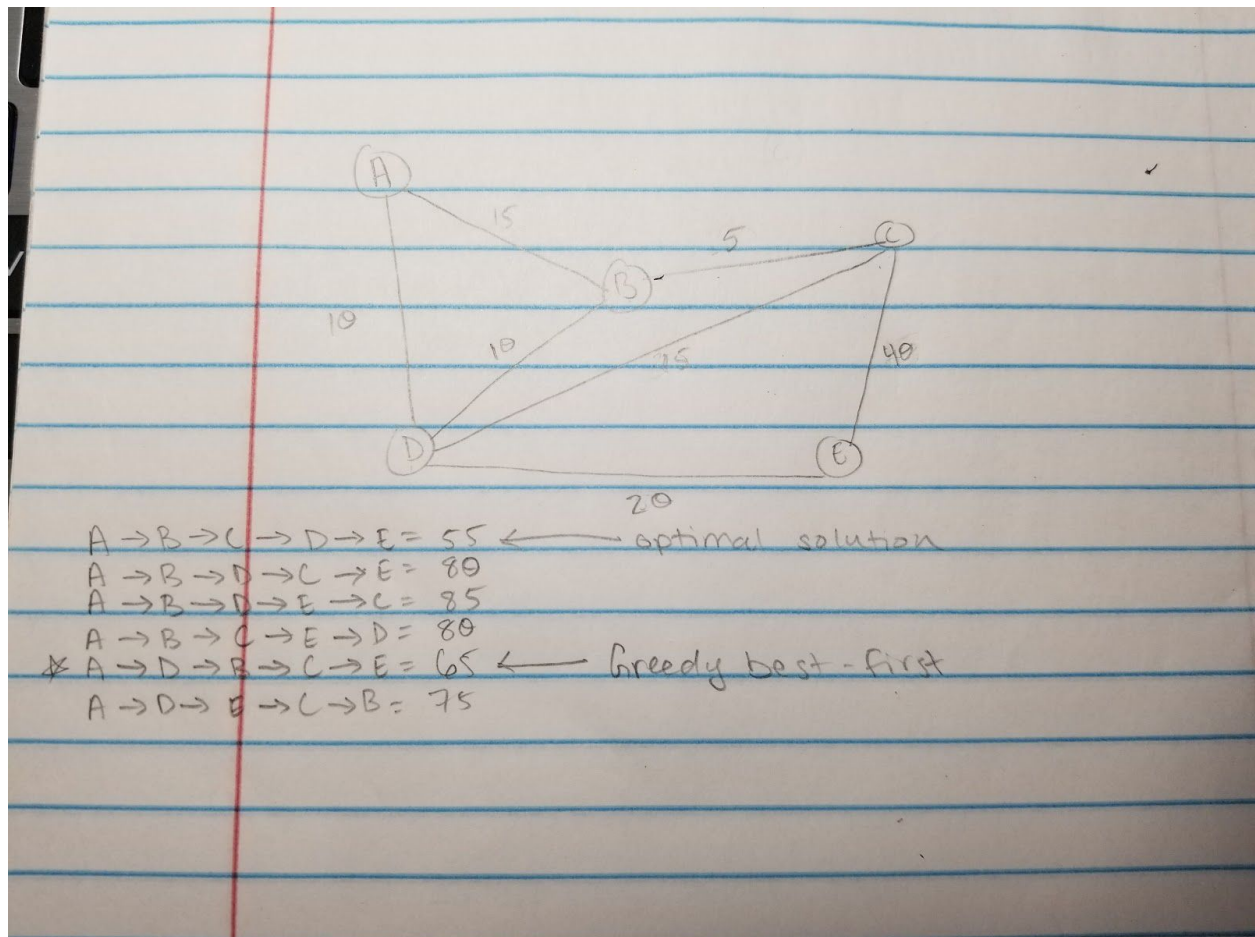 A
15
5
C
B
10
10
15
40
D
E
20
A → B → C → D → E = 55 ← optimal solution
A → B → D → C → E = 80
A → B → D → E → C = 85
A → B → C → E → D = 80
☆ A → D → B → C → E = 65 ← Greedy best-first
A → D → E → C → B = 75